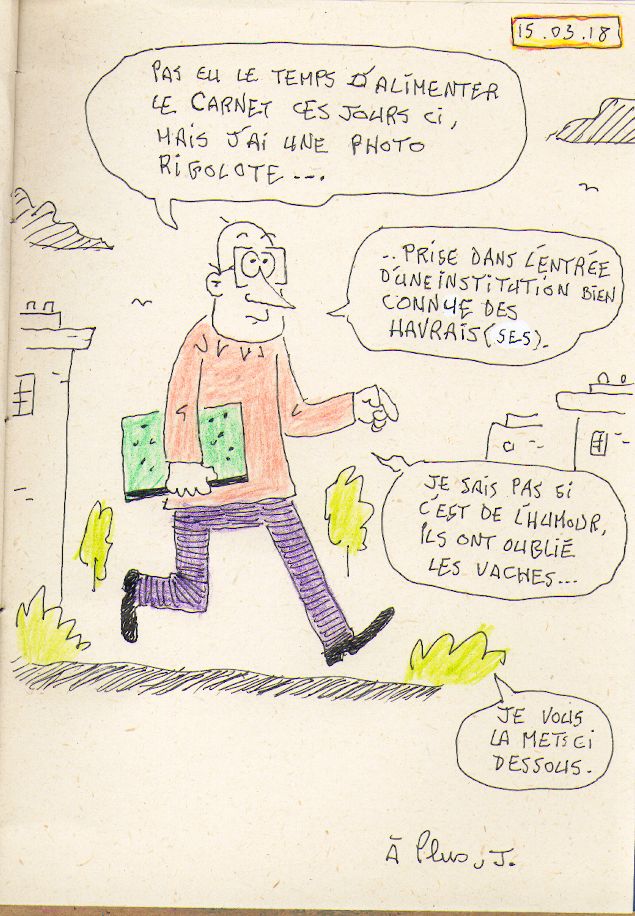 15.03.18
PAS EU LE TEMPS D'ALIMENTER
LE CARNET CES JOURS CI,
MAIS J'AI UNE PHOTO
RIGOLOTE....
..PRISE DANS L'ENTRÉE
D'UNE INSTITUTION BIEN
CONNUE DES
HAVRAIS(SES).
JE SAIS PAS SI
C'EST DE L'HUMOUR,
ILS ONT OUBLIÉ
LES VACHES...
JE VOUS
LA METS CI
DESSOUS.
À Plus, J.